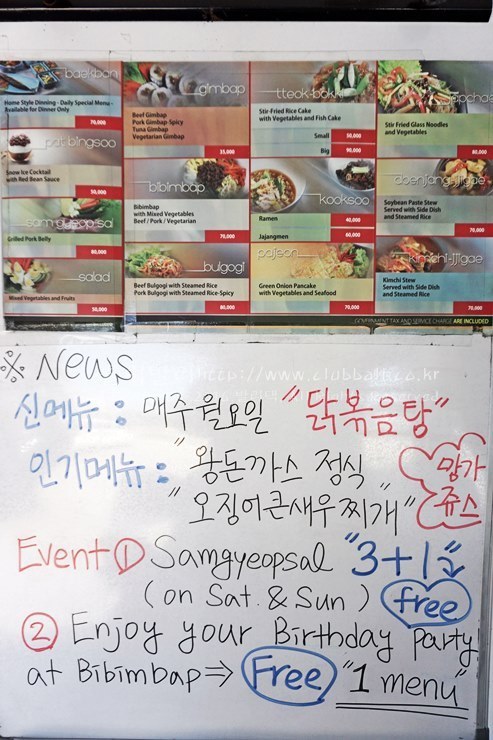 baekban
Home Style Dinning - Daily Special Menu -
Available for Dinner Only
70,000
pat bingsoo
Snow Ice Cocktail
with Red Bean Sauce
50,000
samgyeopsal
Grilled Pork Belly
80,000
salad
Mixed Vegetables and Fruits
50,000
gimbap
Beef Gimbap
Pork Gimbap Spicy
Tuna Gimbap
Vegetarian Gimbap
35,000
bibimbap
Bibimbap
with Mixed Vegetables
Beef / Pork / Vegetarian
70,000
bulgogi
Beef Bulgogi with Steamed Rice
Pork Bulgogi with Steamed Rice-Spicy
80,000
tteok-bokki
Stir-Fried Rice Cake
with Vegetables and Fish Cake
Small 50,000
Big 90,000
kooksoo
Ramen 40,000
Jajangmen 60,000
pajeon
Green Onion Pancake
with Vegetables and Seafood
70,000
Stir Fried Glass Noodles
and Vegetables
80,000
doenjang-jjigae
Soybean Paste Stew
Served with Side Dish
and Steamed Rice
70,000
kimchi-jjigae
Kimchi Stew
Served with Side Dish
and Steamed Rice
70,000
GOVERNMENT TAX AND SERVICE CHARGE ARE INCLUDED
※ NEWS
신메뉴 : 매주 월요일 "닭볶음탕"
인기메뉴 : "왕돈까스 정식
"오징어큰새우찌개"
망가
쥬스
Event ① Samgyeopsal "3+1"
(on Sat. & Sun) free
② Enjoy your Birthday party
at Bibimbap ⇒ Free "1 menu"